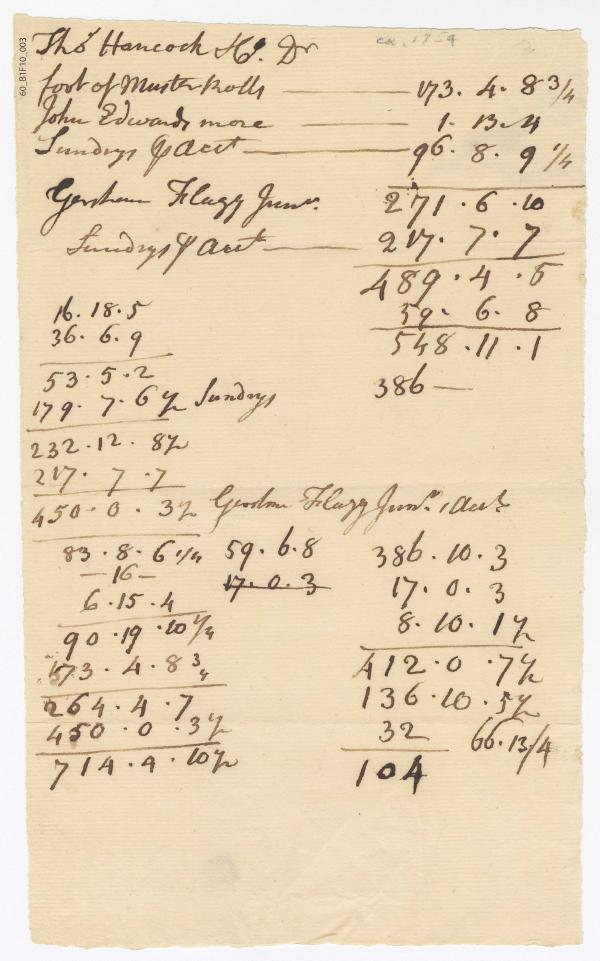 60_B1F10_003
ca. 1754
Thos Hancock Dr
foot of Muster Rolls 173. 4. 8 3/4
John Edwards more 1. 13. 4
Sundrys p acct 96. 8. 9 1/4
271. 6. 10
Gershom Flagg Junr.
Sundrys p acct 217. 7. 7
489. 4. 5
59. 6. 8
548. 11. 1
386—
16. 18. 5
36. 6. 9
53. 5. 2
179. 7. 6 1/2 Sundrys
232. 12. 8 1/2
217. 7. 7
450. 0. 3 1/2 Gershom Flagg Junr. acct
83. 8. 6 1/4
—16—
6. 15. 4
90. 19. 10 1/4
173. 4. 8 3/4
264. 4. 7
450. 0. 3 1/2
714. 4. 10 1/2
59. 6. 8
17. 0. 3
386. 10. 3
17. 0. 3
8. 10. 1 1/2
412. 0. 7 1/2
136. 10. 5 1/2
32
66. 13/4
104